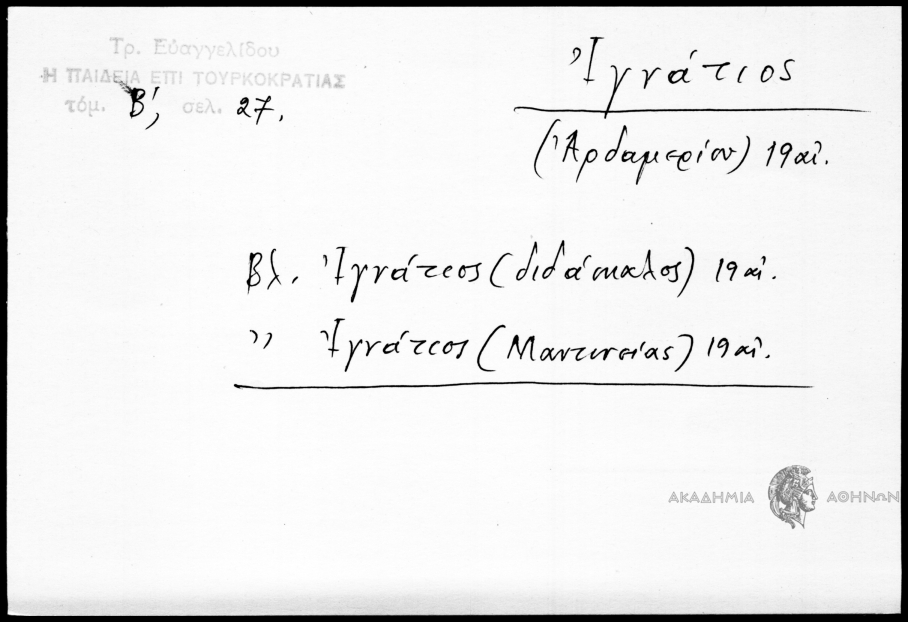 Τρ. Εὐαγγελίδου
Η ΠΑΙΔΕΙΑ ΕΠΙ ΤΟΥΡΚΟΚΡΑΤΙΑΣ
τόμ. Β', σελ. 27.
Ἰγνάτιος
(Ἀρδαμερίου) 19 αἰ.
Βλ. Ἰγνάτιος (διδάσκαλος) 19 αἰ.
〃 Ἰγνάτιος (Μαντινείας) 19 αἰ.
ΑΚΑΔΗΜΙΑ ΑΘΗΝΩΝ